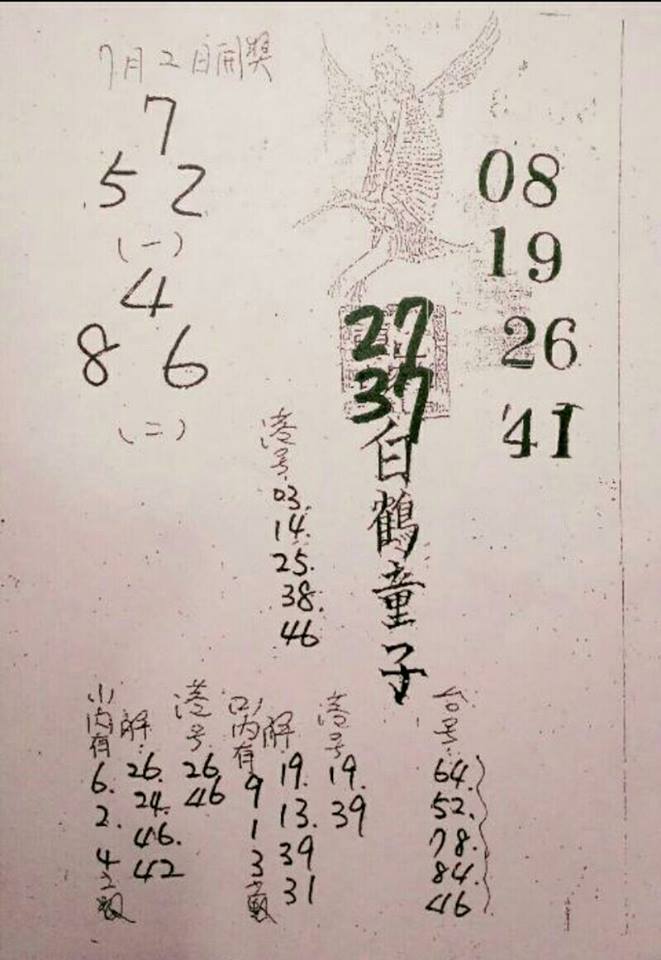 7月2日開獎
7
5 2
(一)
4
8 6
(二)
08
19
26
41
27
37
白鶴童子
港号
03.
14.
25.
38.
46
小内有
6.
2.
4之数
解:
26.
24.
46.
42
港号
26
46
口内有
9
1
3之數
解
19.
13.
39
31
港号
19.
39
台号:
64.
52.
78.
84.
46